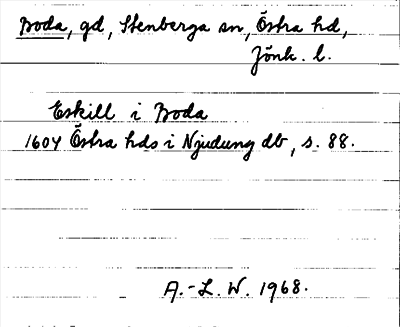 Boda, gd, Stenberga sn, Östra hd,
Jönk. l.
Eskill i Boda
1604 Östra hds i Njudung db, s. 88.
A.-L. W. 1968.